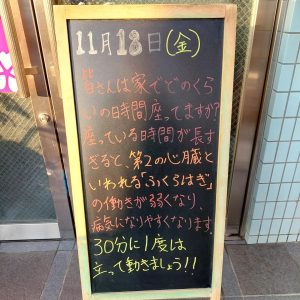 11月18日(金)
皆さんは家でどのくら
いの時間座ってますか?
座っている時間が長す
ぎると、第2の心臓と
いわれる「ふくらはぎ」
の働きが弱くなり、
病気になりやすくなります。
30分に1度は
立って動きましょう!!